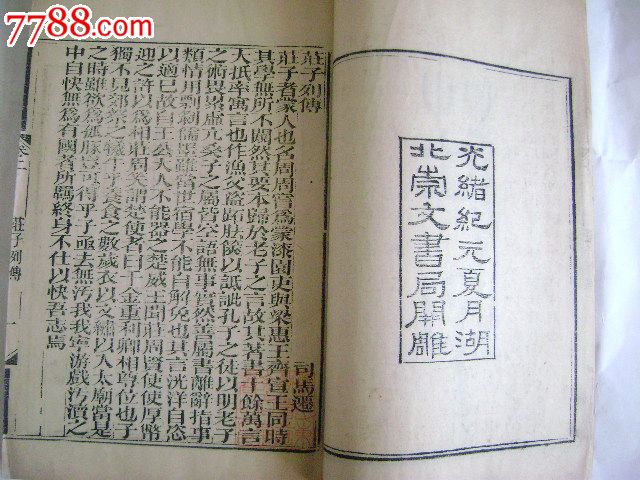 7788.com
光緒紀元夏月湖
北崇文書局開雕
莊子列傳
司馬遷
莊子者蒙人也名周周嘗爲蒙漆園吏與梁惠王齊宣王同時
其學無所不闚然其要本歸於老子之言故其著書十餘萬言
大抵率寓言也作漁父盜跖胠篋以詆訿孔子之徒以明老子
之術畏累虛亢桑子之屬皆空語無事實然善屬書離辭指事
類情用剽剝儒墨雖當世宿學不能自解免也其言洸洋自恣
以適己故自王公大人不能器之楚威王聞莊周賢使使厚幣
迎之許以爲相莊周笑謂楚使者曰千金重利卿相尊位也子
獨不見郊祭之犧牛乎養食之數歲衣以文繡以入太廟當是
之時雖欲爲孤豚豈可得乎子亟去無汚我我寧游戲汚瀆之
中自快無爲有國者所羈終身不仕以快吾志焉
莊子列傳
一